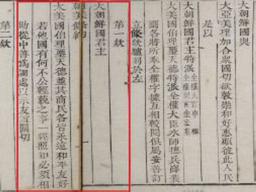 大朝鮮國與
大亞美理駕合衆國切欲敦崇和好惠顧彼此人民
是以
大朝鮮國君主特派全權
大美國伯理璽天德特派全權大臣水師總兵薛裴爾
各將所奉全權字據互相較閱俱屬妥善訂
立條款臚列於左
第一款
大朝鮮國君主
大美國伯理璽天德並其商民各皆永遠和平友好
若他國有何不公輕藐之事一經照知必須相
助從中善爲調處以示友誼關切
第二款